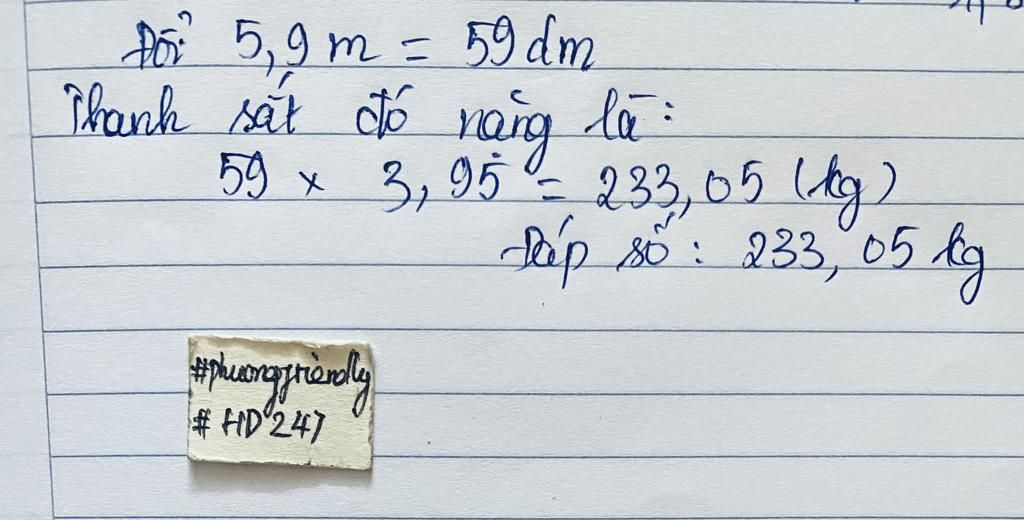 Đổi 5,9 m = 59 dm
Thanh sắt đó nặng là:
59 x 3,95 = 233,05 (kg)
Đáp số: 233,05 kg
#phuongfriendly
# HD247